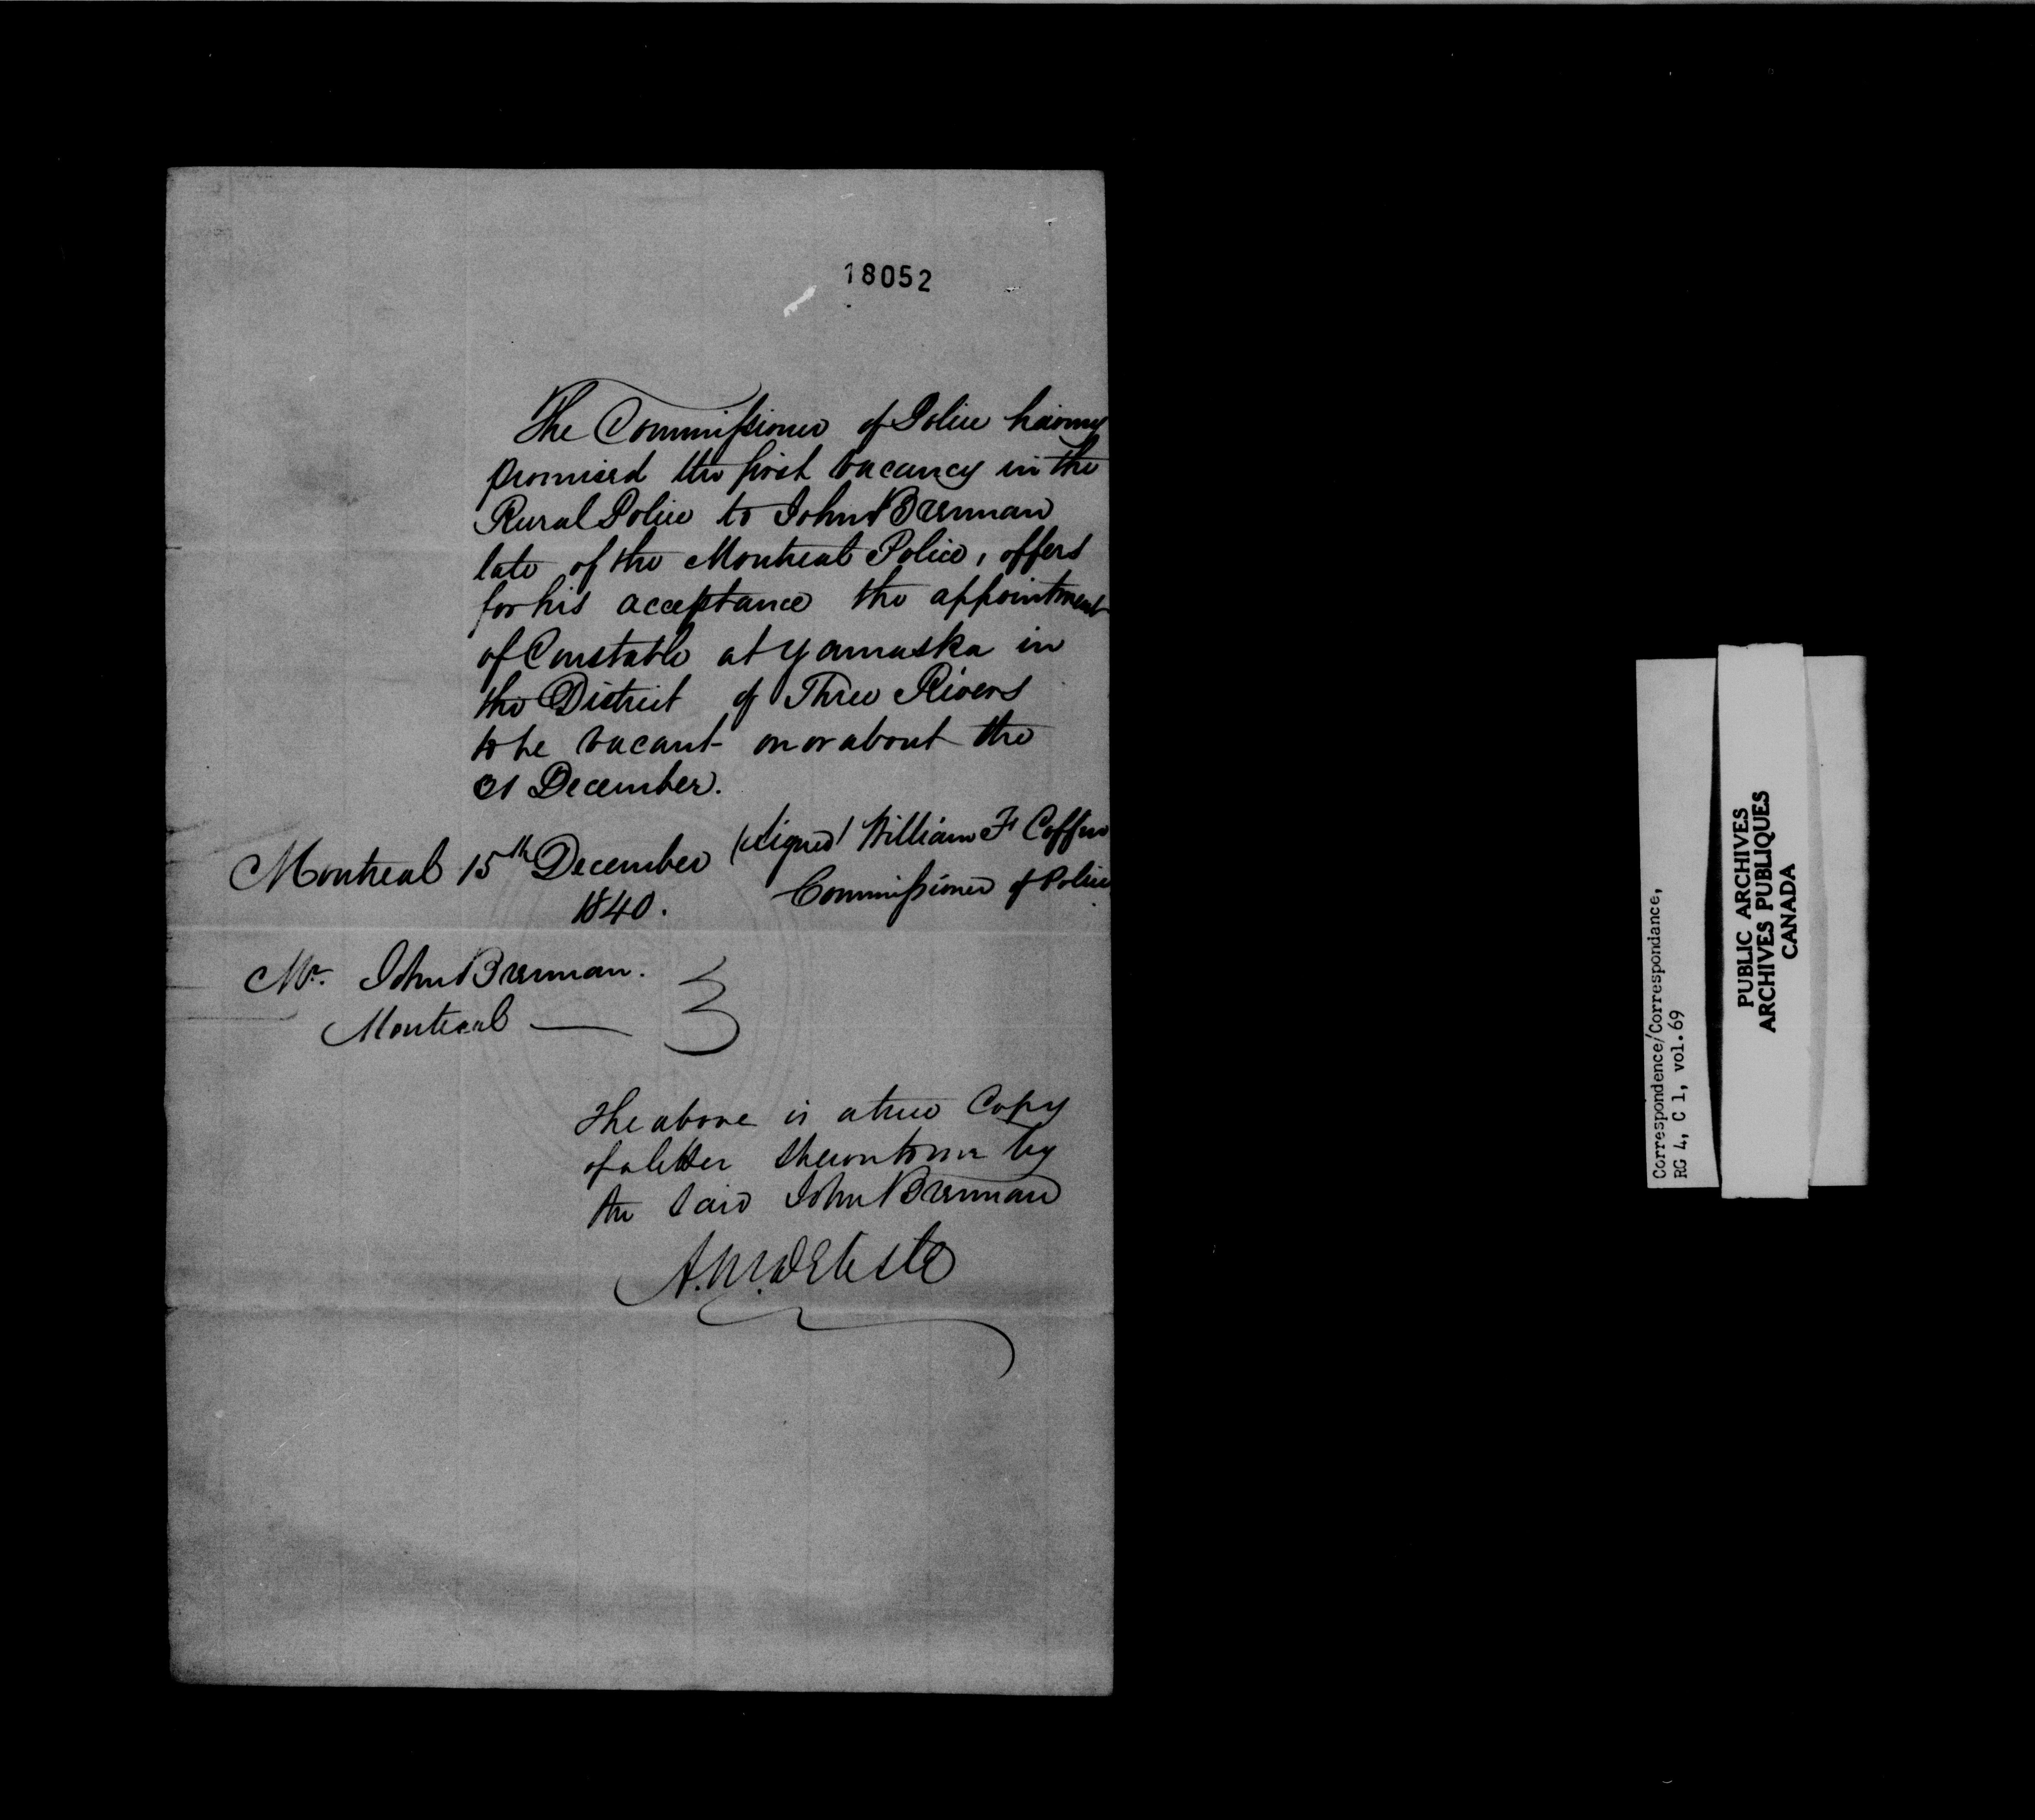 18052
The Commissioner of Police having
promised the first vacancy in the
Rural Police to John Brennan
late of the Montreal Police, offers
for his acceptance the appointment
of Constable at Yamaska in
the District of Three Rivers
to be vacant on or about the
31 December.
(signed) William F Coffin
Commissioner of Police
Montreal 15th December
1840.
Mr. John Brennan.
Montreal
The above is a true Copy
of a letter shewn to me by
the said John Brennan
Correspondence/Correspondance,
RG 4, C 1, vol.69
PUBLIC ARCHIVES
ARCHIVES PUBLIQUES
CANADA